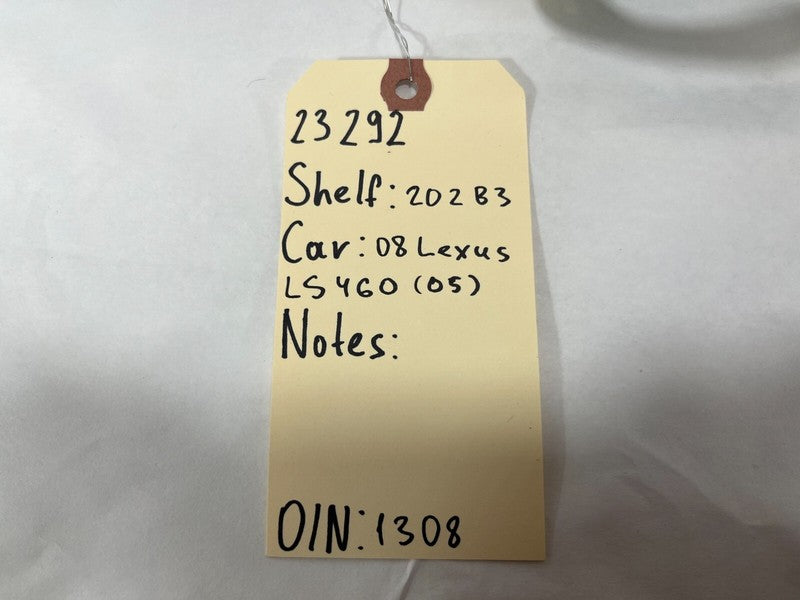 23292
Shelf: 202B3
Car: 08 Lexus
LS460 (05)
Notes:
O/N: 1308